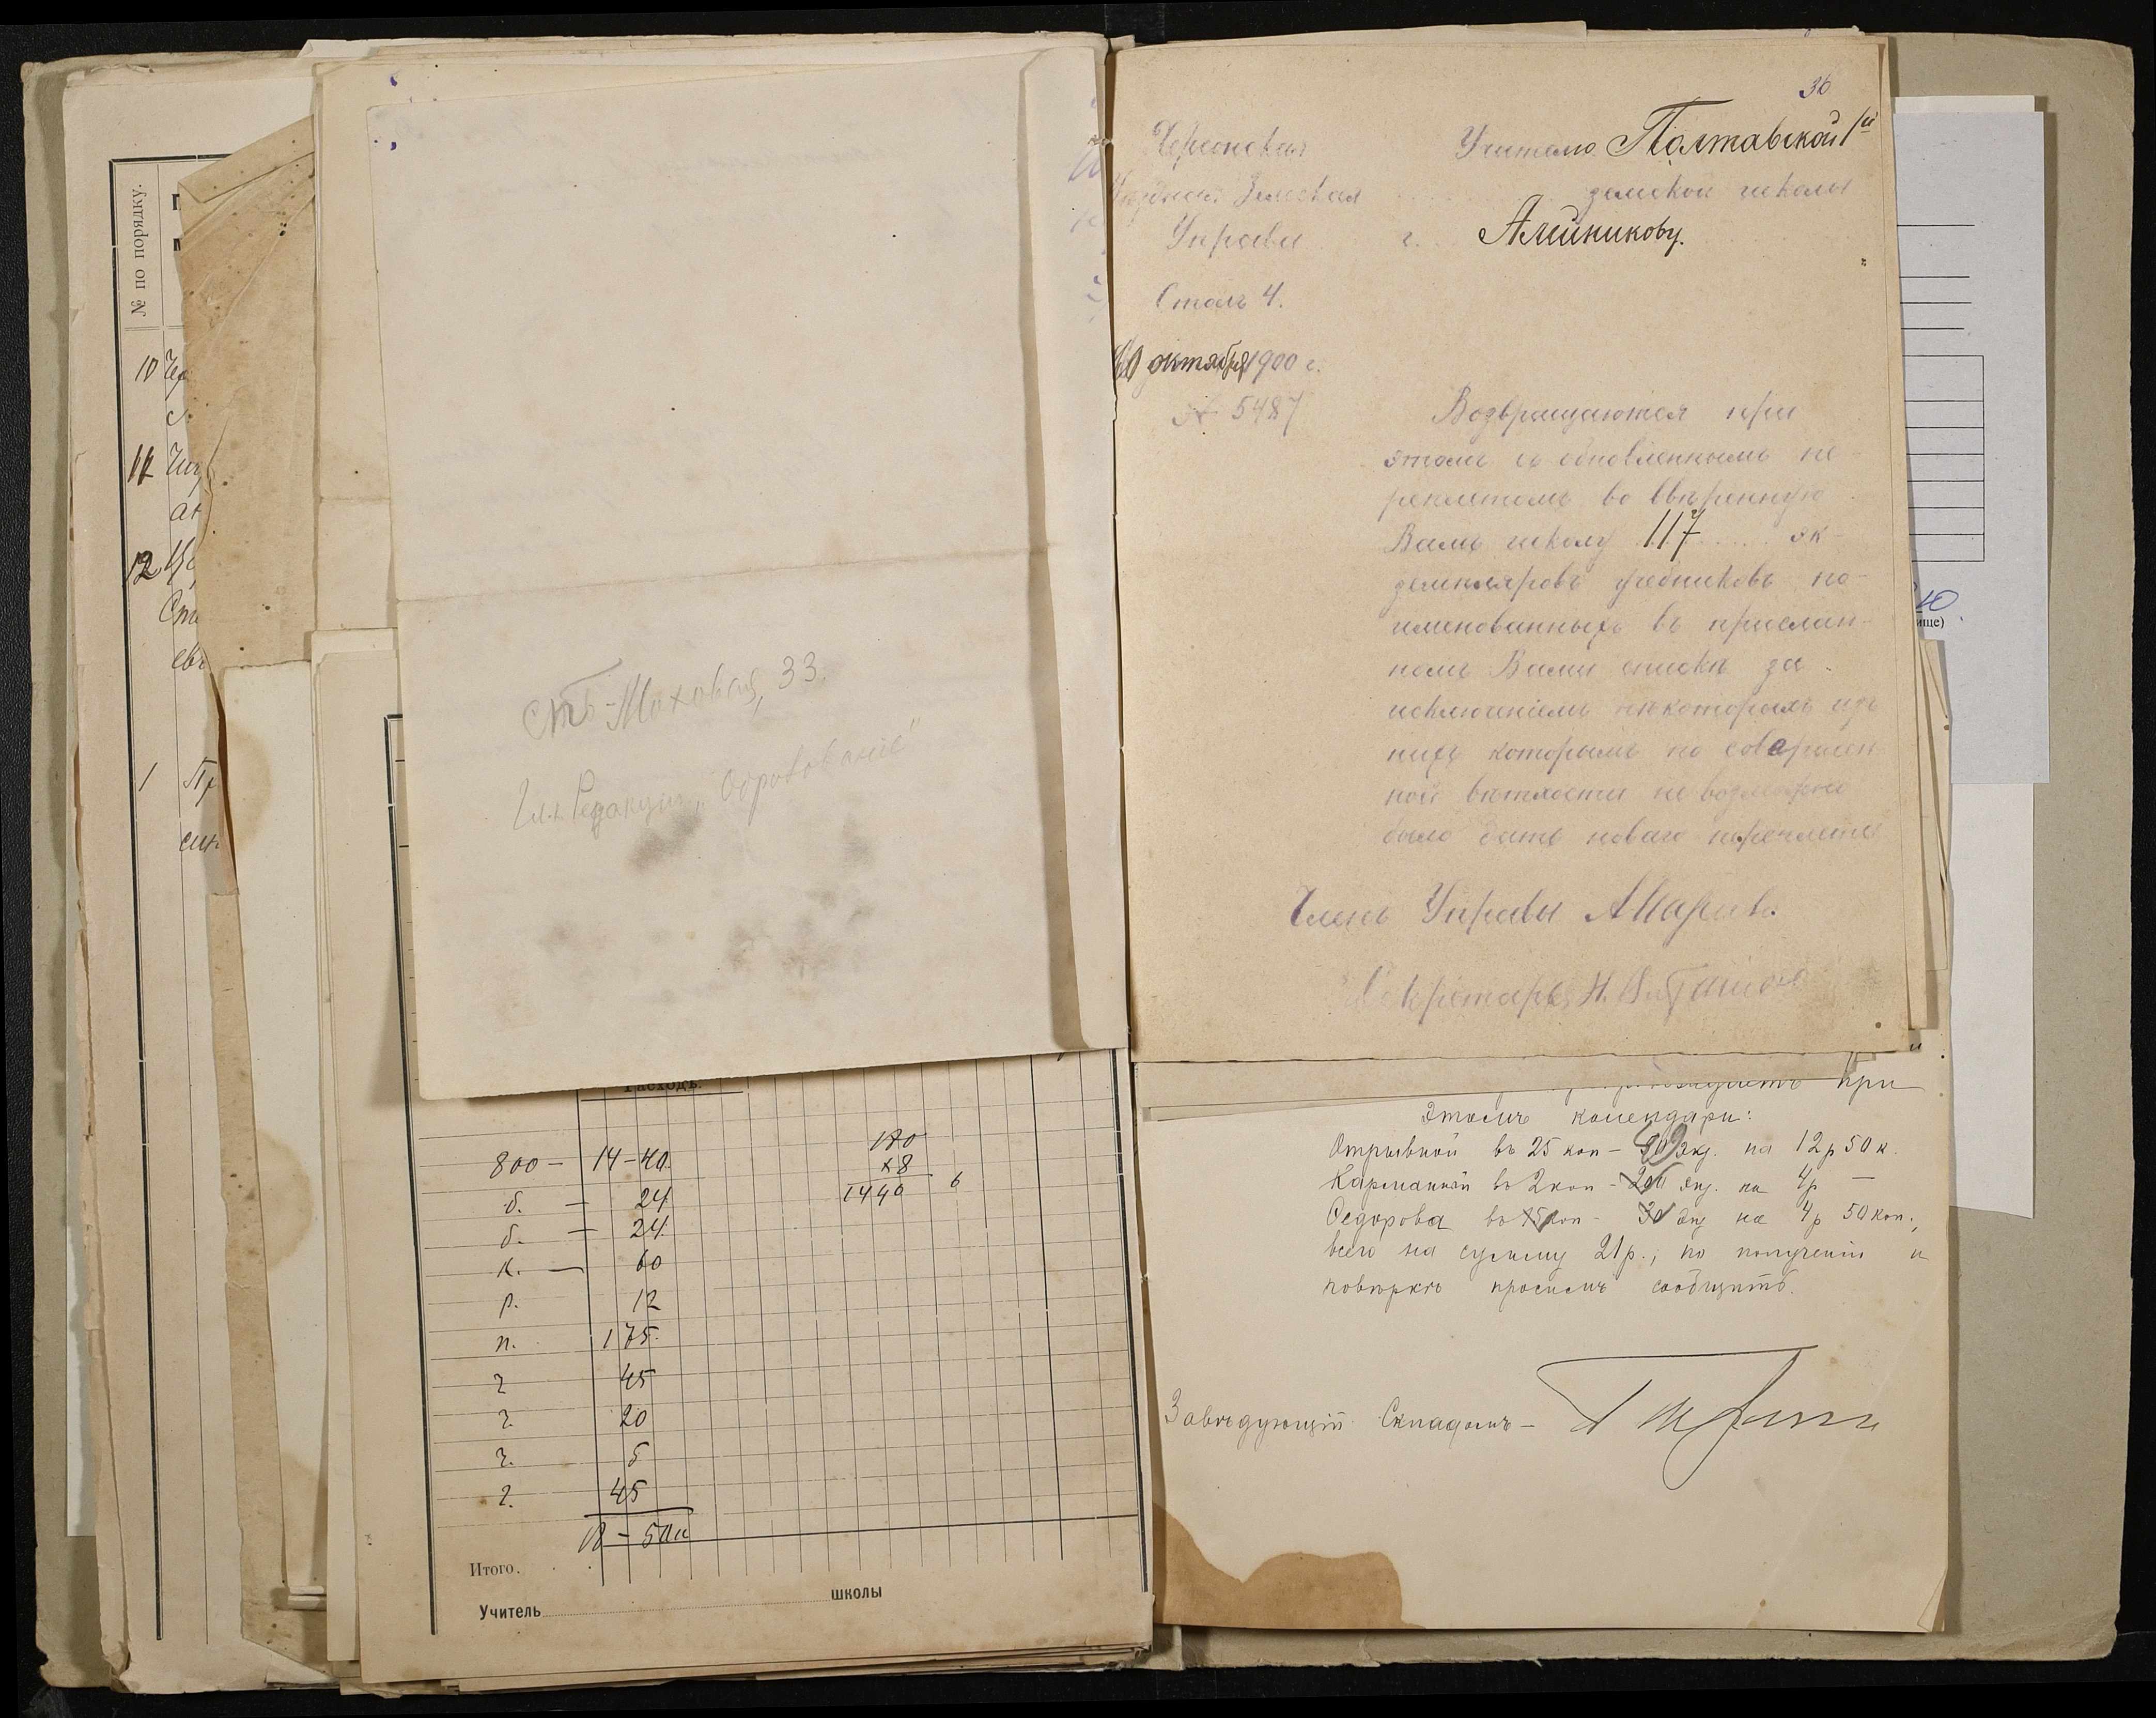 № по порядку.
10
11
12
Спи
1
Спб-Моховая, 33.
Гл. Редакции „Образованіе"
Расходъ.
800 — 14-40
180
х8
1440 6
б. — 24
б. — 24
к. — 60
р. 12
п. 175
г 45
г. 20
г. 5
г. 45
18 - 50
Итого.
Учитель школы
36
Херсонская
Уѣздная Земская
Управа
Столъ 4.
октября 1900 г.
№ 5487
Учителю Полтавской 1й
земской школы
г. Алейникову.
Возвращаются при
этомъ съ обновленнымъ пе
реплетомъ во ввѣренную
Вамъ школу 117 эк-
земпляровъ учебниковъ по-
именованныхъ въ прислан-
номъ Вами спискѣ за
исключеніемъ нѣкоторыхъ изъ
нихъ которымъ по совершен
ной ветхости не возможно
было дать новаго переплета
Членъ Управы
Секретарь Н.
при
этомъ календари:
Отрывной въ 25 коп — 50 экз. на 12 р 50 к.
Карманный въ 2 коп — 200 экз. на 4 р —
Федорова въ 15 коп — 30 экз на 4 р 50 коп.,
всего на сумму 21 р.; по полученіи и
повѣркѣ просимъ сообщить.
Завѣдующій Складомъ —